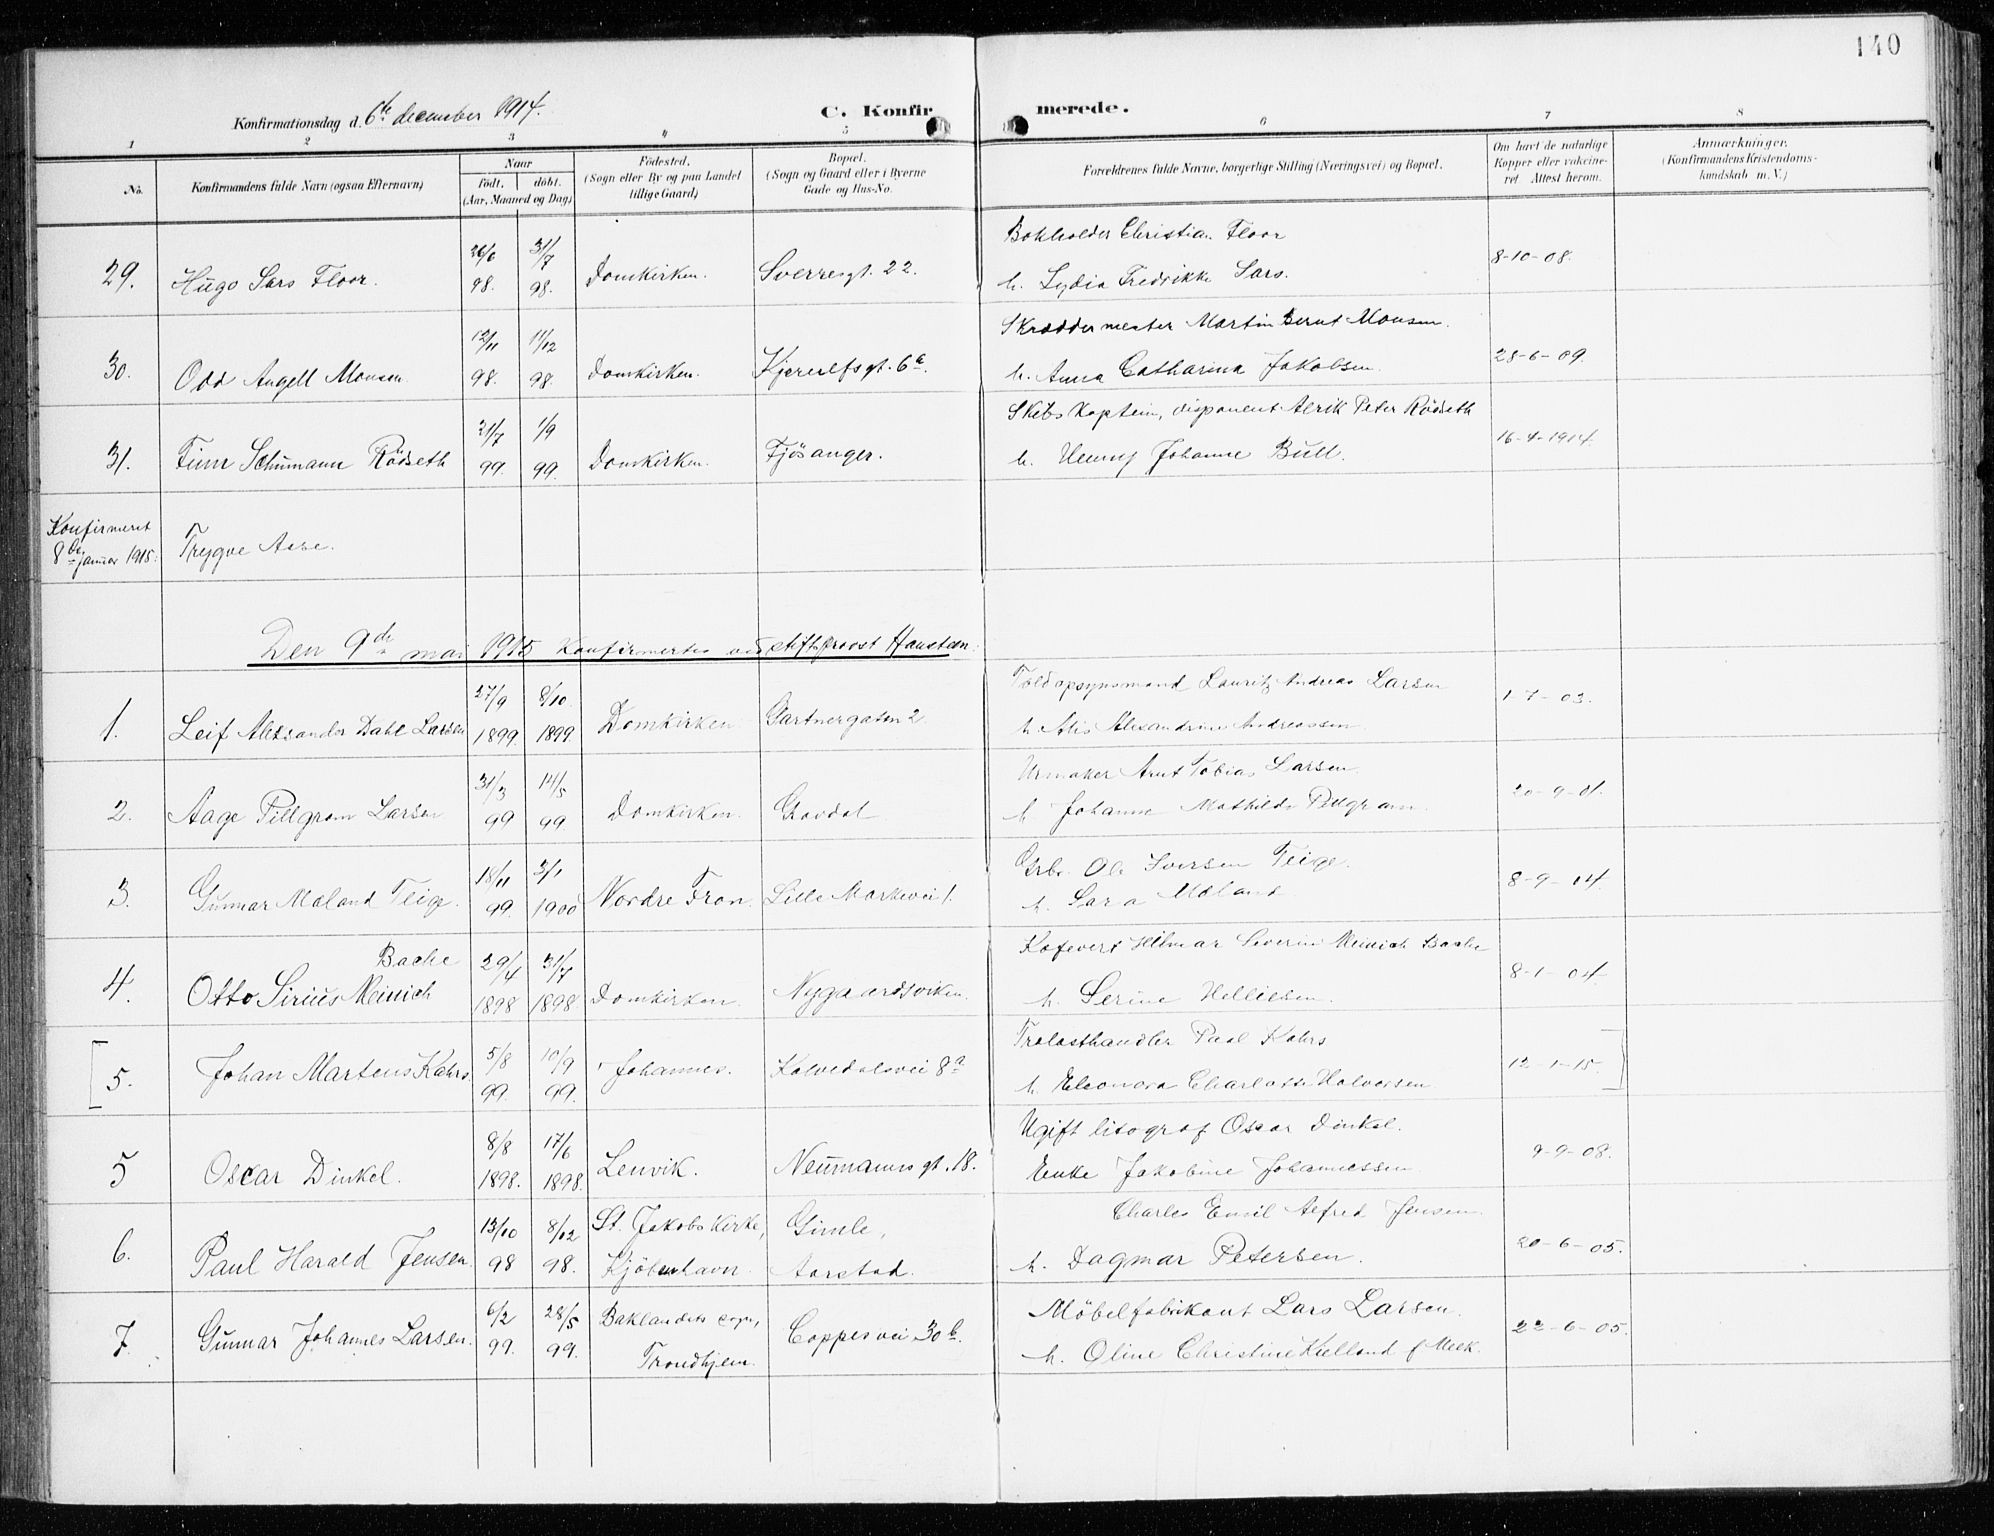 140
Konfirmationsdag d. 6te december 1914.
C. Konfirmerede.
1 2 3 4 5 6 7 8
No.
Konfirmandens fulde Navn (ogsaa Efternavn)
Naar
født. døbt.
(Aar, Maaned og Dag)
Fødested.
(Sogn eller By og paa Landet
tillige Gaard)
Bopæl.
(Sogn og Gaard eller i Byerne
Gade og Hus-No.
Forældrenes fulde Navne, borgerlige Stilling (Næringsvei) og Bopæl.
Om havt de naturlige
Kopper eller vakcine-
ret. Attest herom.
Anmærkninger.
(Konfirmandens Kristendoms-
kundskab m. V.)
29. Hugo Sars Floor. 26/6 98. 31/7 98. Domkirken. Sverresgt. 22.
Bokholder Christian Floor
h. Lydia Fredrikke Sars. 8-10-08.
30. Odd Angell Monsen. 12/11 98. 11/12 98. Domkirken. Kjerulfsgt. 6a.
Skræddermester Martin Bernt Monsen.
h. Anna Catharina Jakobsen. 28-6-09.
31. Finn Schumann Rödseth 21/7 99. 1/9 99. Domkirken. Fjösanger.
Skibskaptein, disponent Alrik Peter Rödseth
h. Henny Johanne Bull. 16-4-1914.
Konfirmeret
8de januar 1915: Trygve Aase.
Den 9de mai 1915 konfirmertes ved stiftsprovst Hansteen:
1. Leif Alexander Dahl Larsen 27/9 1899. 8/10 1899. Domkirken Gartnergaten 2
Toldopsynsmand Lauritz Andreas Larsen
h. Alis Alexandrine Andreassen. 1-7-03.
2. Aage Pillgram Larsen 31/3 99 14/5 99 Domkirken. Gravdal
Urmaker Arnt Tobias Larsen.
h. Johanne Mathilde Pillgram. 20-9-01.
3. Gunnar Maland Teige. 18/11 99. 3/1 1900 Nordre Fron. Lille Markevei 1.
Grbr. Ole Iversen Teige.
h. Sara Maland 8-9-14.
4. Otto Sirius Meinich Bache 29/4 1898 31/7 1898 Domkirken. Nygaardsviken.
Hilmar Severin Meinich Bache
h. Serine Hellisen. 8-1-04.
[5. Johan Martens Kahrs. 5/8 99. 10/9 99. Johannes. Kalvedalsvei 8a
Trelasthandler Paul Kahrs
h. Eleonora Charlotte Halvorsen 12-1-15.]
5 Oscar Dinkel. 8/8 1898. 17/6 1898. Lenvik. Neumanns gt. 18.
Ugift litograf Oscar Dinkel.
Enke Jakobine Johannessen 9-9-08.
6. Paul Harald Jensen 13/10 98 8/12 98. St. Jakobs Kirke, Kjöbenhavn. Gimle, Aarstad.
Charles Emil Alfred Jensen
h. Dagmar Petersen. 20-6-05.
7. Gunnar Johannes Larsen. 6/2 99. 28/5 99. Baklandets sogn, Trondhjem. Coppesvei 30b.
Möbelfabrikant Lars Larsen.
h. Oline Christine Kielland f. Meek. 22-6-05.